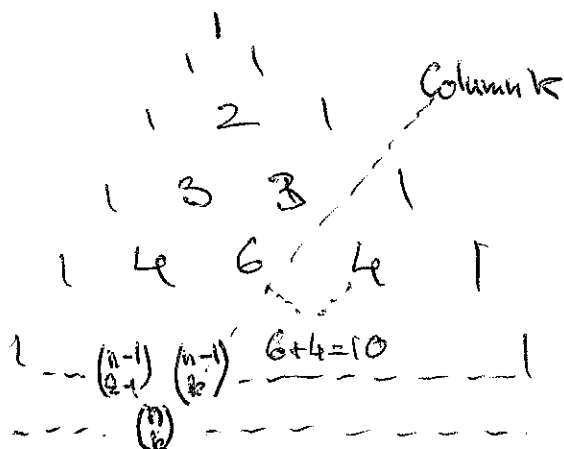 1
1 1
Column k
1 2 1
1 3 3 1
1 4 6 4 1
1 --- (n-1 k-1) (n-1 k) 6+4=10 --- 1
--- (n k) ---